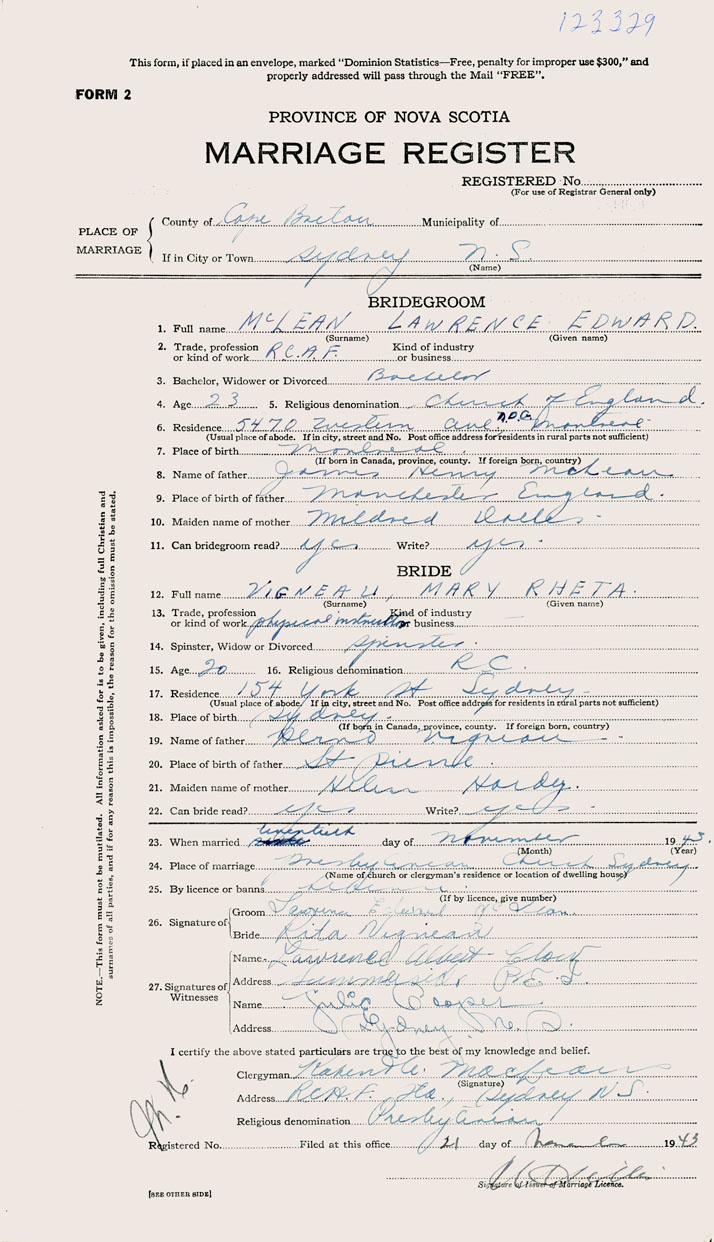 123329
This form, if placed in an envelope, marked "Dominion Statistics—Free, penalty for improper use $300," and
properly addressed will pass through the Mail "FREE".
FORM 2
PROVINCE OF NOVA SCOTIA
MARRIAGE REGISTER
REGISTERED No.
(For use of Registrar General only)
PLACE OF MARRIAGE
County of Cape Breton Municipality of
If in City or Town Sydney N.S.
(Name)
BRIDEGROOM
1. Full name McLEAN LAWRENCE EDWARD.
(Surname) (Given name)
2. Trade, profession or kind of work R.C.A.F. Kind of industry or business
3. Bachelor, Widower or Divorced Bachelor
4. Age 23 5. Religious denomination Church of England.
6. Residence 5470 Western Ave. N.D.G. Montreal
(Usual place of abode. If in city, street and No. Post office address for residents in rural parts not sufficient)
7. Place of birth Montreal.
(If born in Canada, province, county. If foreign born, country)
8. Name of father James Henry McLean
9. Place of birth of father Manchester England.
10. Maiden name of mother Mildred
11. Can bridegroom read? yes Write? yes.
BRIDE
12. Full name VIGNEAU, MARY RHETA.
(Surname) (Given name)
13. Trade, profession or kind of work physical instructor Kind of industry or business
14. Spinster, Widow or Divorced Spinster.
15. Age 20 16. Religious denomination R.C.
17. Residence 154 York St Sydney
(Usual place of abode. If in city, street and No. Post office address for residents in rural parts not sufficient)
18. Place of birth Sydney.
(If born in Canada, province, county. If foreign born, country)
19. Name of father Vigneau
20. Place of birth of father St Pierre.
21. Maiden name of mother Helen Hardy.
22. Can bride read? yes Write? yes
23. When married twentieth day of November 1943.
(Month) (Year)
24. Place of marriage Presbyterian Church Sydney
(Name of church or clergyman's residence or location of dwelling house)
25. By licence or banns
(If by licence, give number)
26. Signature of
Groom Lawrence Edward McLean
Bride Rita Vigneau
27. Signatures of Witnesses
Name Lawrence Albert
Address Summerside, P.E.I.
Name Cooper
Address Sydney N.S.
I certify the above stated particulars are true to the best of my knowledge and belief.
Clergyman
(Signature)
Address R.C.A.F. Sta., Sydney N.S.
Religious denomination Presbyterian
Registered No. Filed at this office 21 day of 1943
Signature of Issuer of Marriage Licence.
[SEE OTHER SIDE]
NOTE.—This form must not be mutilated. All information asked for is to be given, including full Christian and
surnames of all parties, and if for any reason this is impossible, the reason for the omission must be stated.